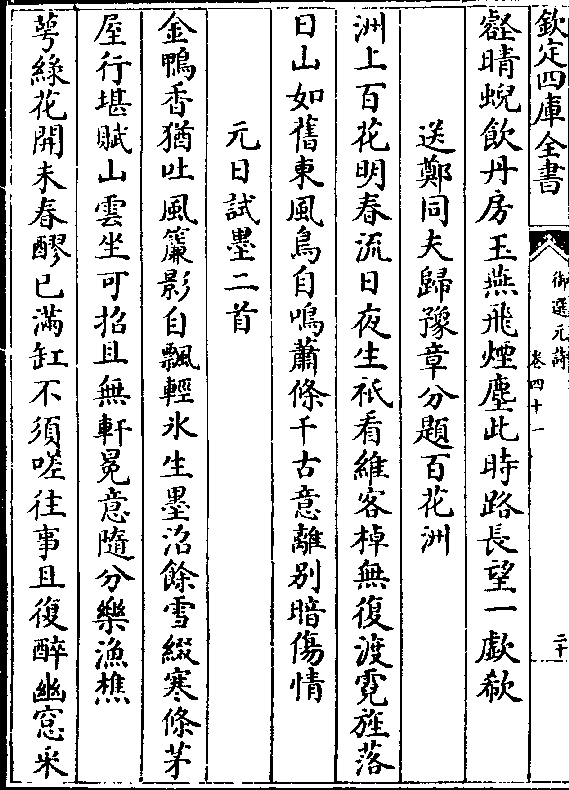 欽定四庫全書
御選元詩
卷四十一
二十
壑晴蜺飲丹房玉燕飛煙塵此時路長望一歔欷
送鄭同夫歸豫章分題百花洲
洲上百花明春流日夜生祇看維客棹無復渡霓旌落
日山如舊東風鳥自鳴蕭條千古意離别暗傷情
元日試墨二首
金鴨香猶吐風簾影自飄輕氷生墨沼餘雪綴寒條茅
屋行堪賦山雲坐可招且無軒冕意隨分樂漁樵
萼緑花開未春醪已滿缸不須嗟往事且復醉幽窓采